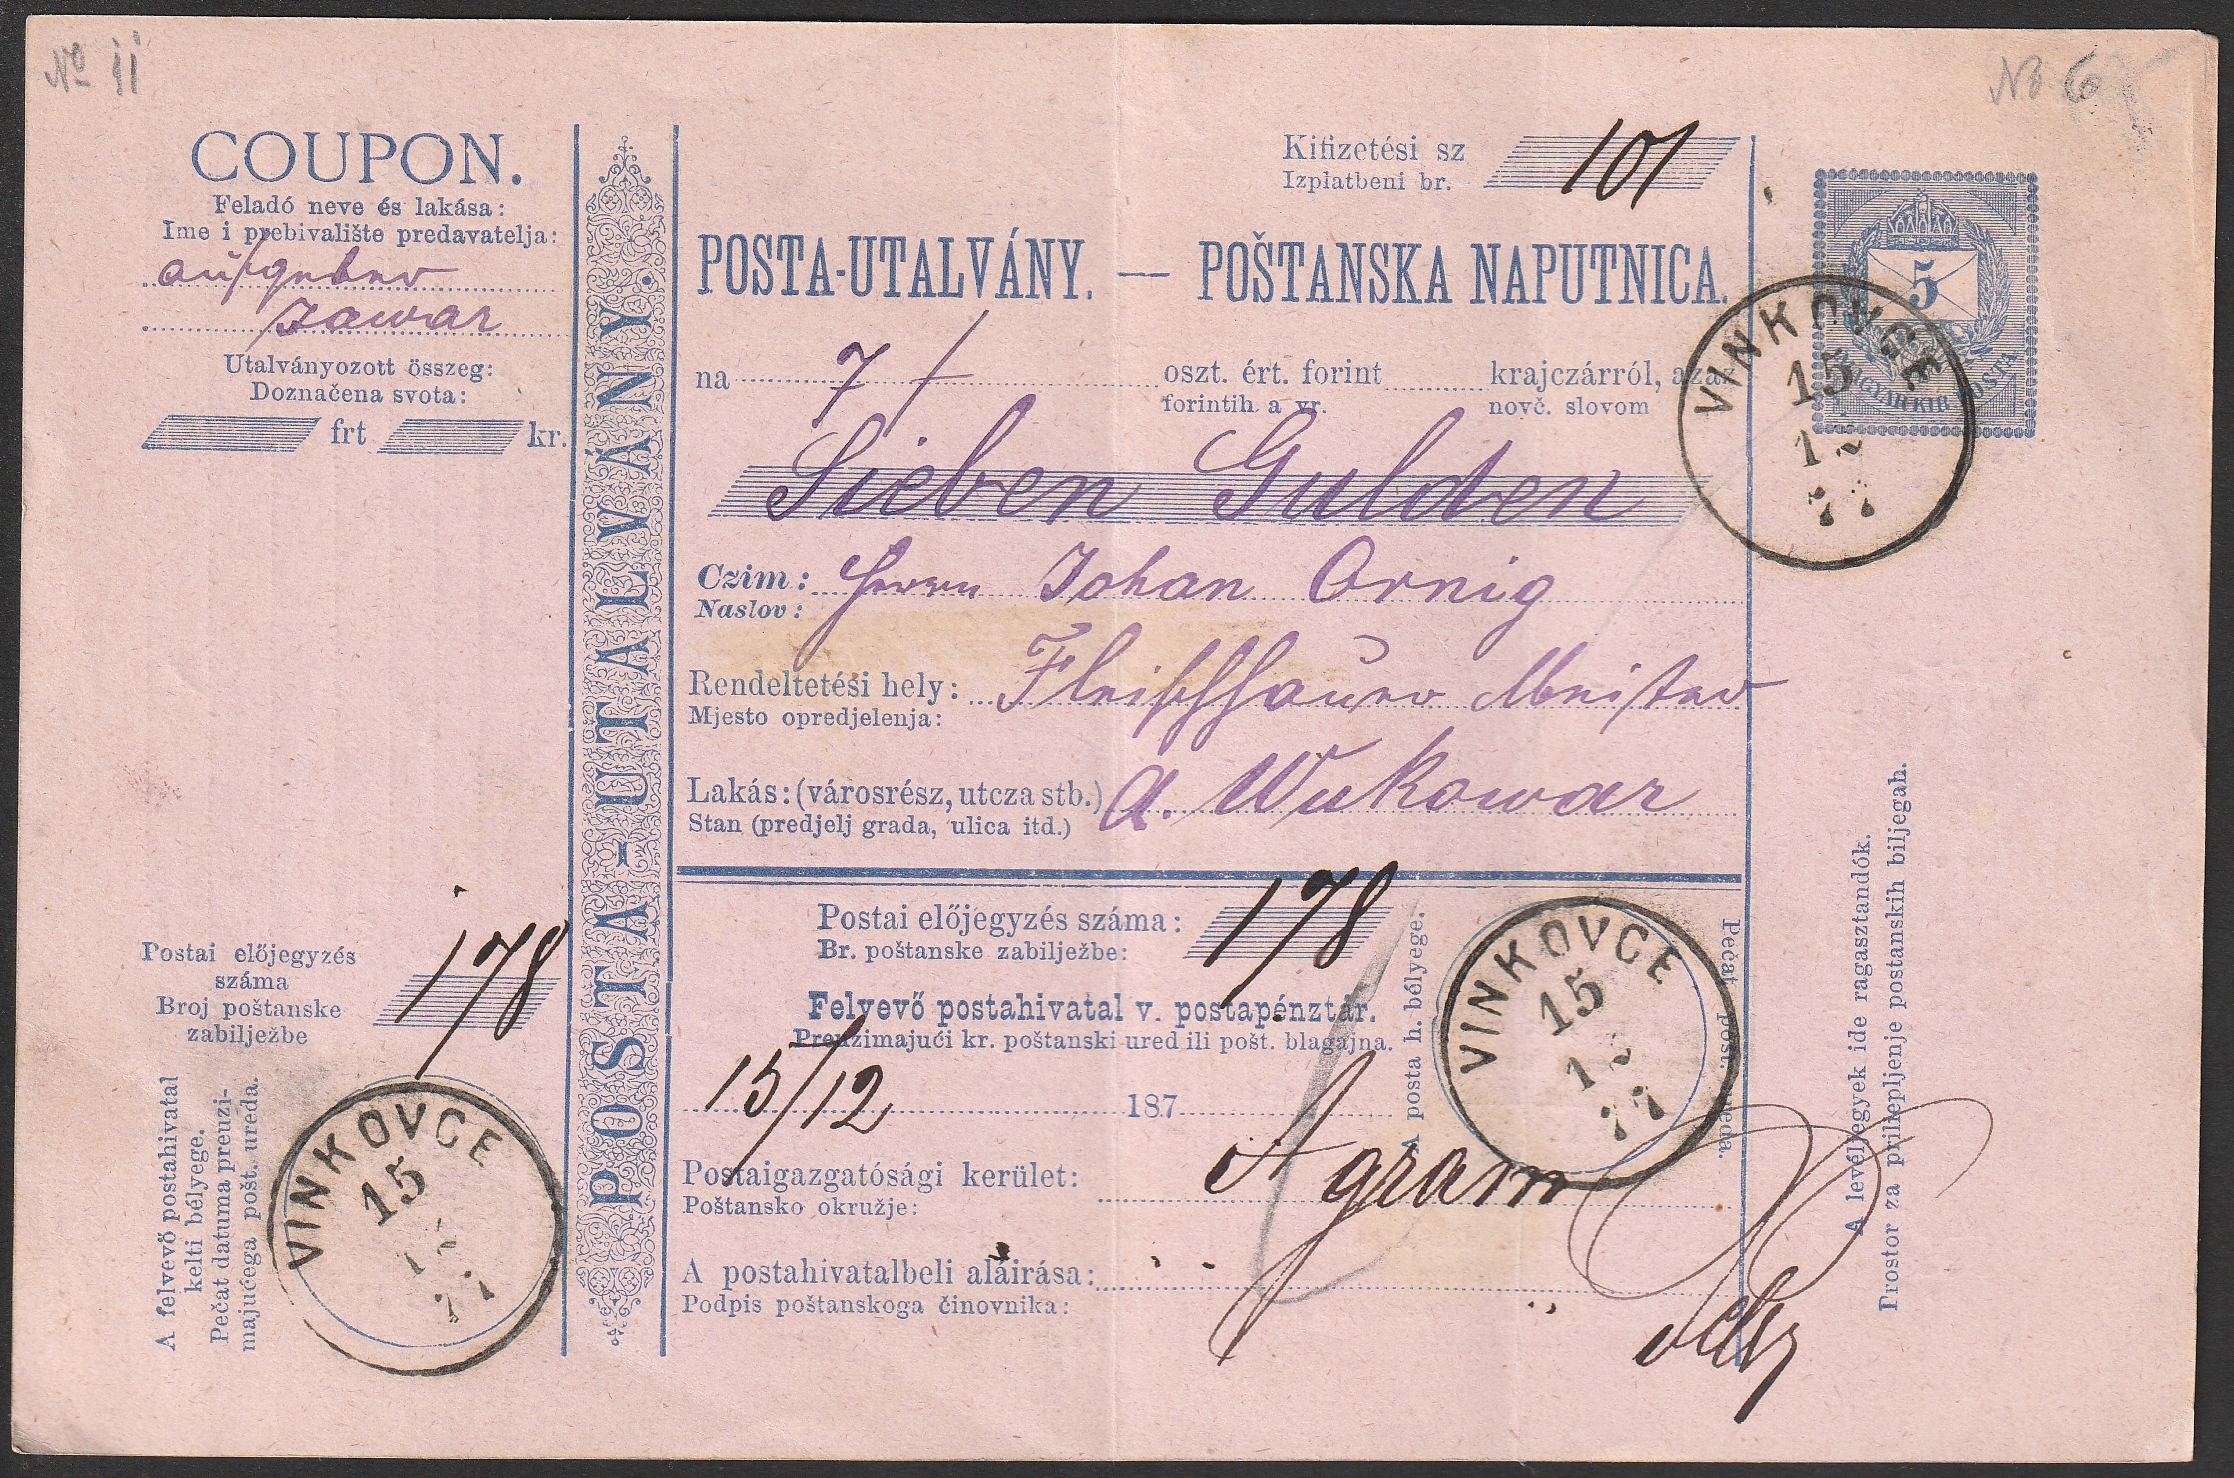 No 11
No 6
COUPON.
Feladó neve és lakása:
Ime i prebivalište predavatelja:
aufgeber
Utalványozott összeg:
Doznačena svota:
frt kr.
Postai előjegyzés
száma
Broj poštanske
zabilježbe
178
A felvevő postahivatal
kelti bélyege.
Pečat datuma preuzi-
majućega pošt. ureda.
VINKOVCE
15
12
77
POSTA-UTALVÁNY.
Kifizetési sz
Izplatbeni br.
101
POSTA-UTALVÁNY. — POŠTANSKA NAPUTNICA.
na 7 oszt. ért. forint krajczárról, azaz
forintih a vr. novč. slovom
Sieben Gulden
Czim: Herrn Johan Ornig
Naslov:
Rendeltetési hely: Fleischhauer Meister
Mjesto opredjelenja:
Lakás: (városrész, utcza stb.) a. Wukowar
Stan (predjelj grada, ulica itd.)
Postai előjegyzés száma: 178
Br. poštanske zabilježbe:
Felvevő postahivatal v. postapénztár.
Preuzimajući kr. poštanski ured ili pošt. blagajna.
15/12 187
Postaigazgatósági kerület: Agram
Poštansko okružje:
A postahivatalbeli aláirása:
Podpis poštanskoga činovnika:
A posta h. bélyege.
Pečat post. ureda.
VINKOVCE
15
12
77
5
MAGYAR KIR. POSTA
VINKOVCE
15
12
77
A levéljegyek ide ragasztandók.
Prostor za prilepljenje postanskih biljegah.